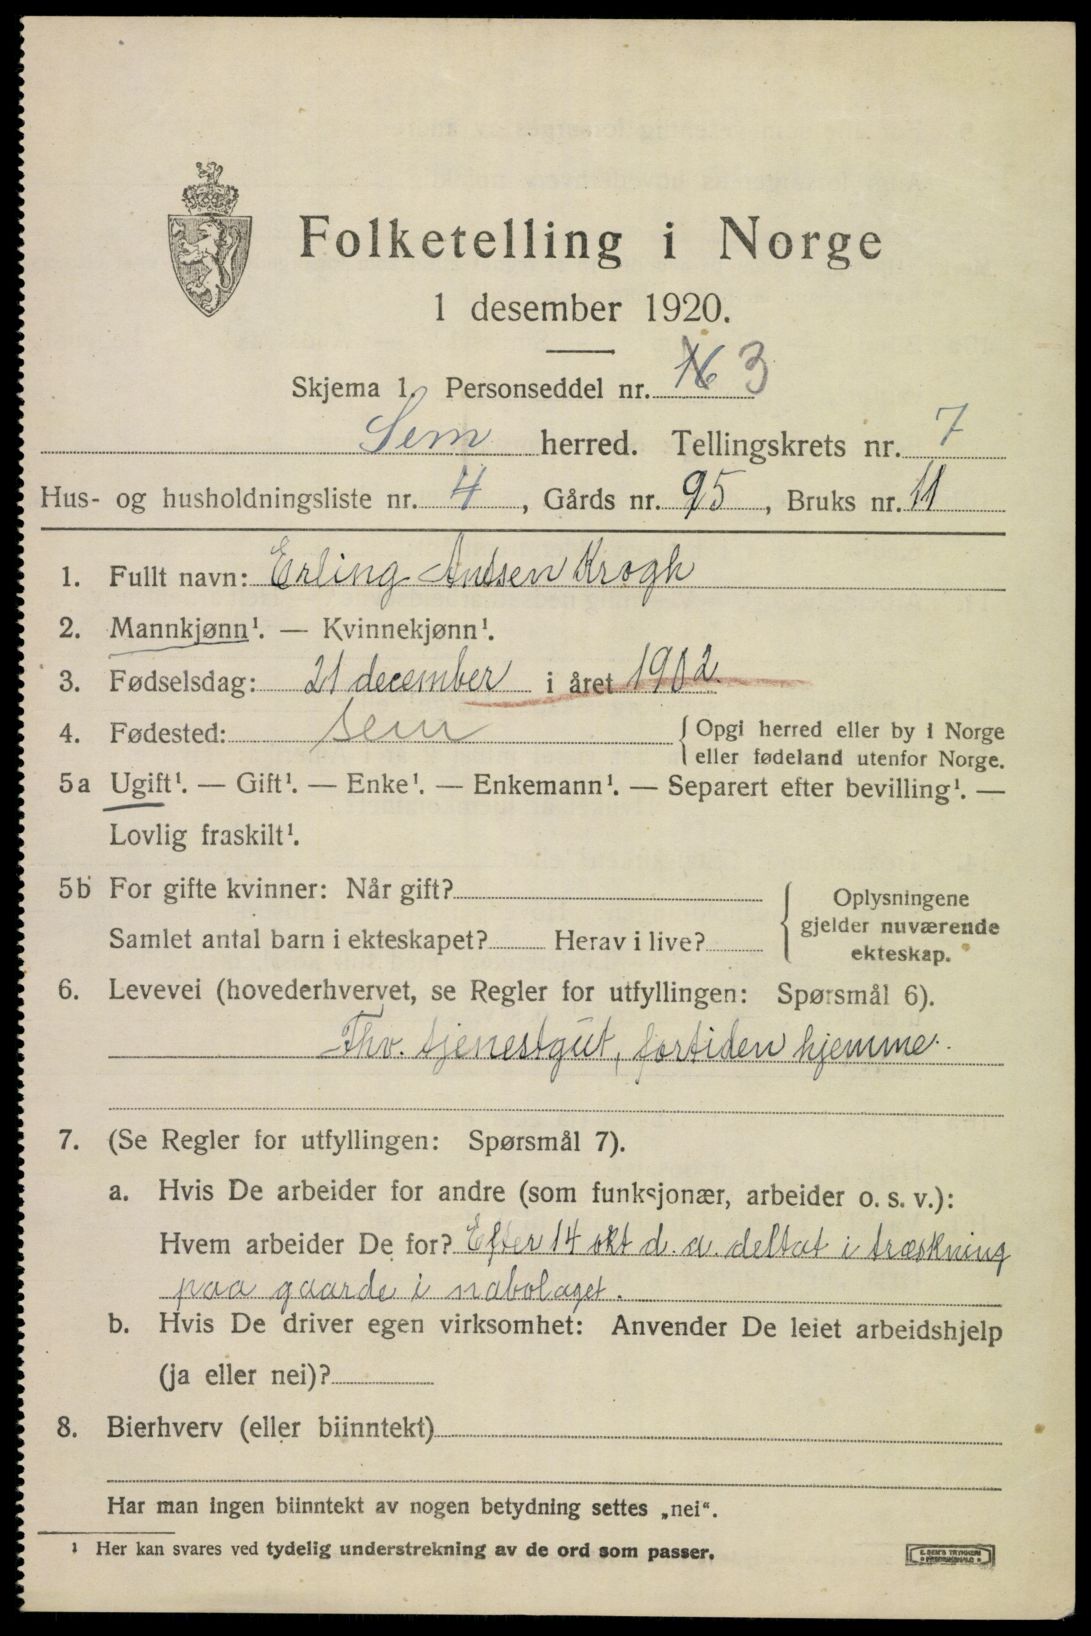 Folketelling i Norge
1 desember 1920.
Skjema 1. Personseddel nr. 16 3
Sem herred. Tellingskrets nr. 7
Hus- og husholdningsliste nr. 4, Gårds nr. 95, Bruks nr. 11
1. Fullt navn: Erling Antsen Krogh
2. Mannkjønn¹. — Kvinnekjønn¹.
3. Fødselsdag: 21 december i året 1902.
4. Fødested: Sem { Opgi herred eller by i Norge
eller fødeland utenfor Norge.
5a Ugift¹. — Gift¹. — Enke¹. — Enkemann¹. — Separert efter bevilling¹. —
Lovlig fraskilt¹.
5b For gifte kvinner: Når gift? { Oplysningene
gjelder nuværende
Samlet antal barn i ekteskapet? Herav i live?
ekteskap.
6. Levevei (hovederhvervet, se Regler for utfyllingen: Spørsmål 6).
Fhv. tjenestgut, fortiden hjemme.
7. (Se Regler for utfyllingen: Spørsmål 7).
a. Hvis De arbeider for andre (som funksjonær, arbeider o. s. v.):
Hvem arbeider De for? Efter 14 okt d. a. deltat i træskning
paa gaarde i nabolaget.
b. Hvis De driver egen virksomhet: Anvender De leiet arbeidshjelp
(ja eller nei)?
8. Bierhverv (eller biinntekt)
Har man ingen biinntekt av nogen betydning settes „nei“.
¹ Her kan svares ved tydelig understrekning av de ord som passer.
E. SEM'S TRYKKERI
FREDRIKSHALD